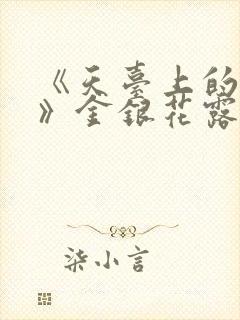 《天臺上的
》金銀花露
柒小言